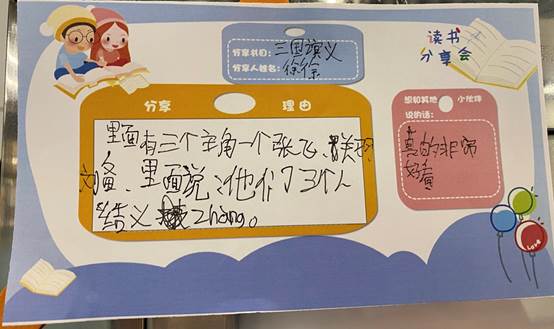 读书
分享会
分享书目：三国演义
分享人姓名：徐徐
分享 理由
里面有三个主角一个张飞、关羽
刘备、里面说：他们了3个人
结义 zhang。
想和其他小伙伴
说的话：
真的非常
好看
Love